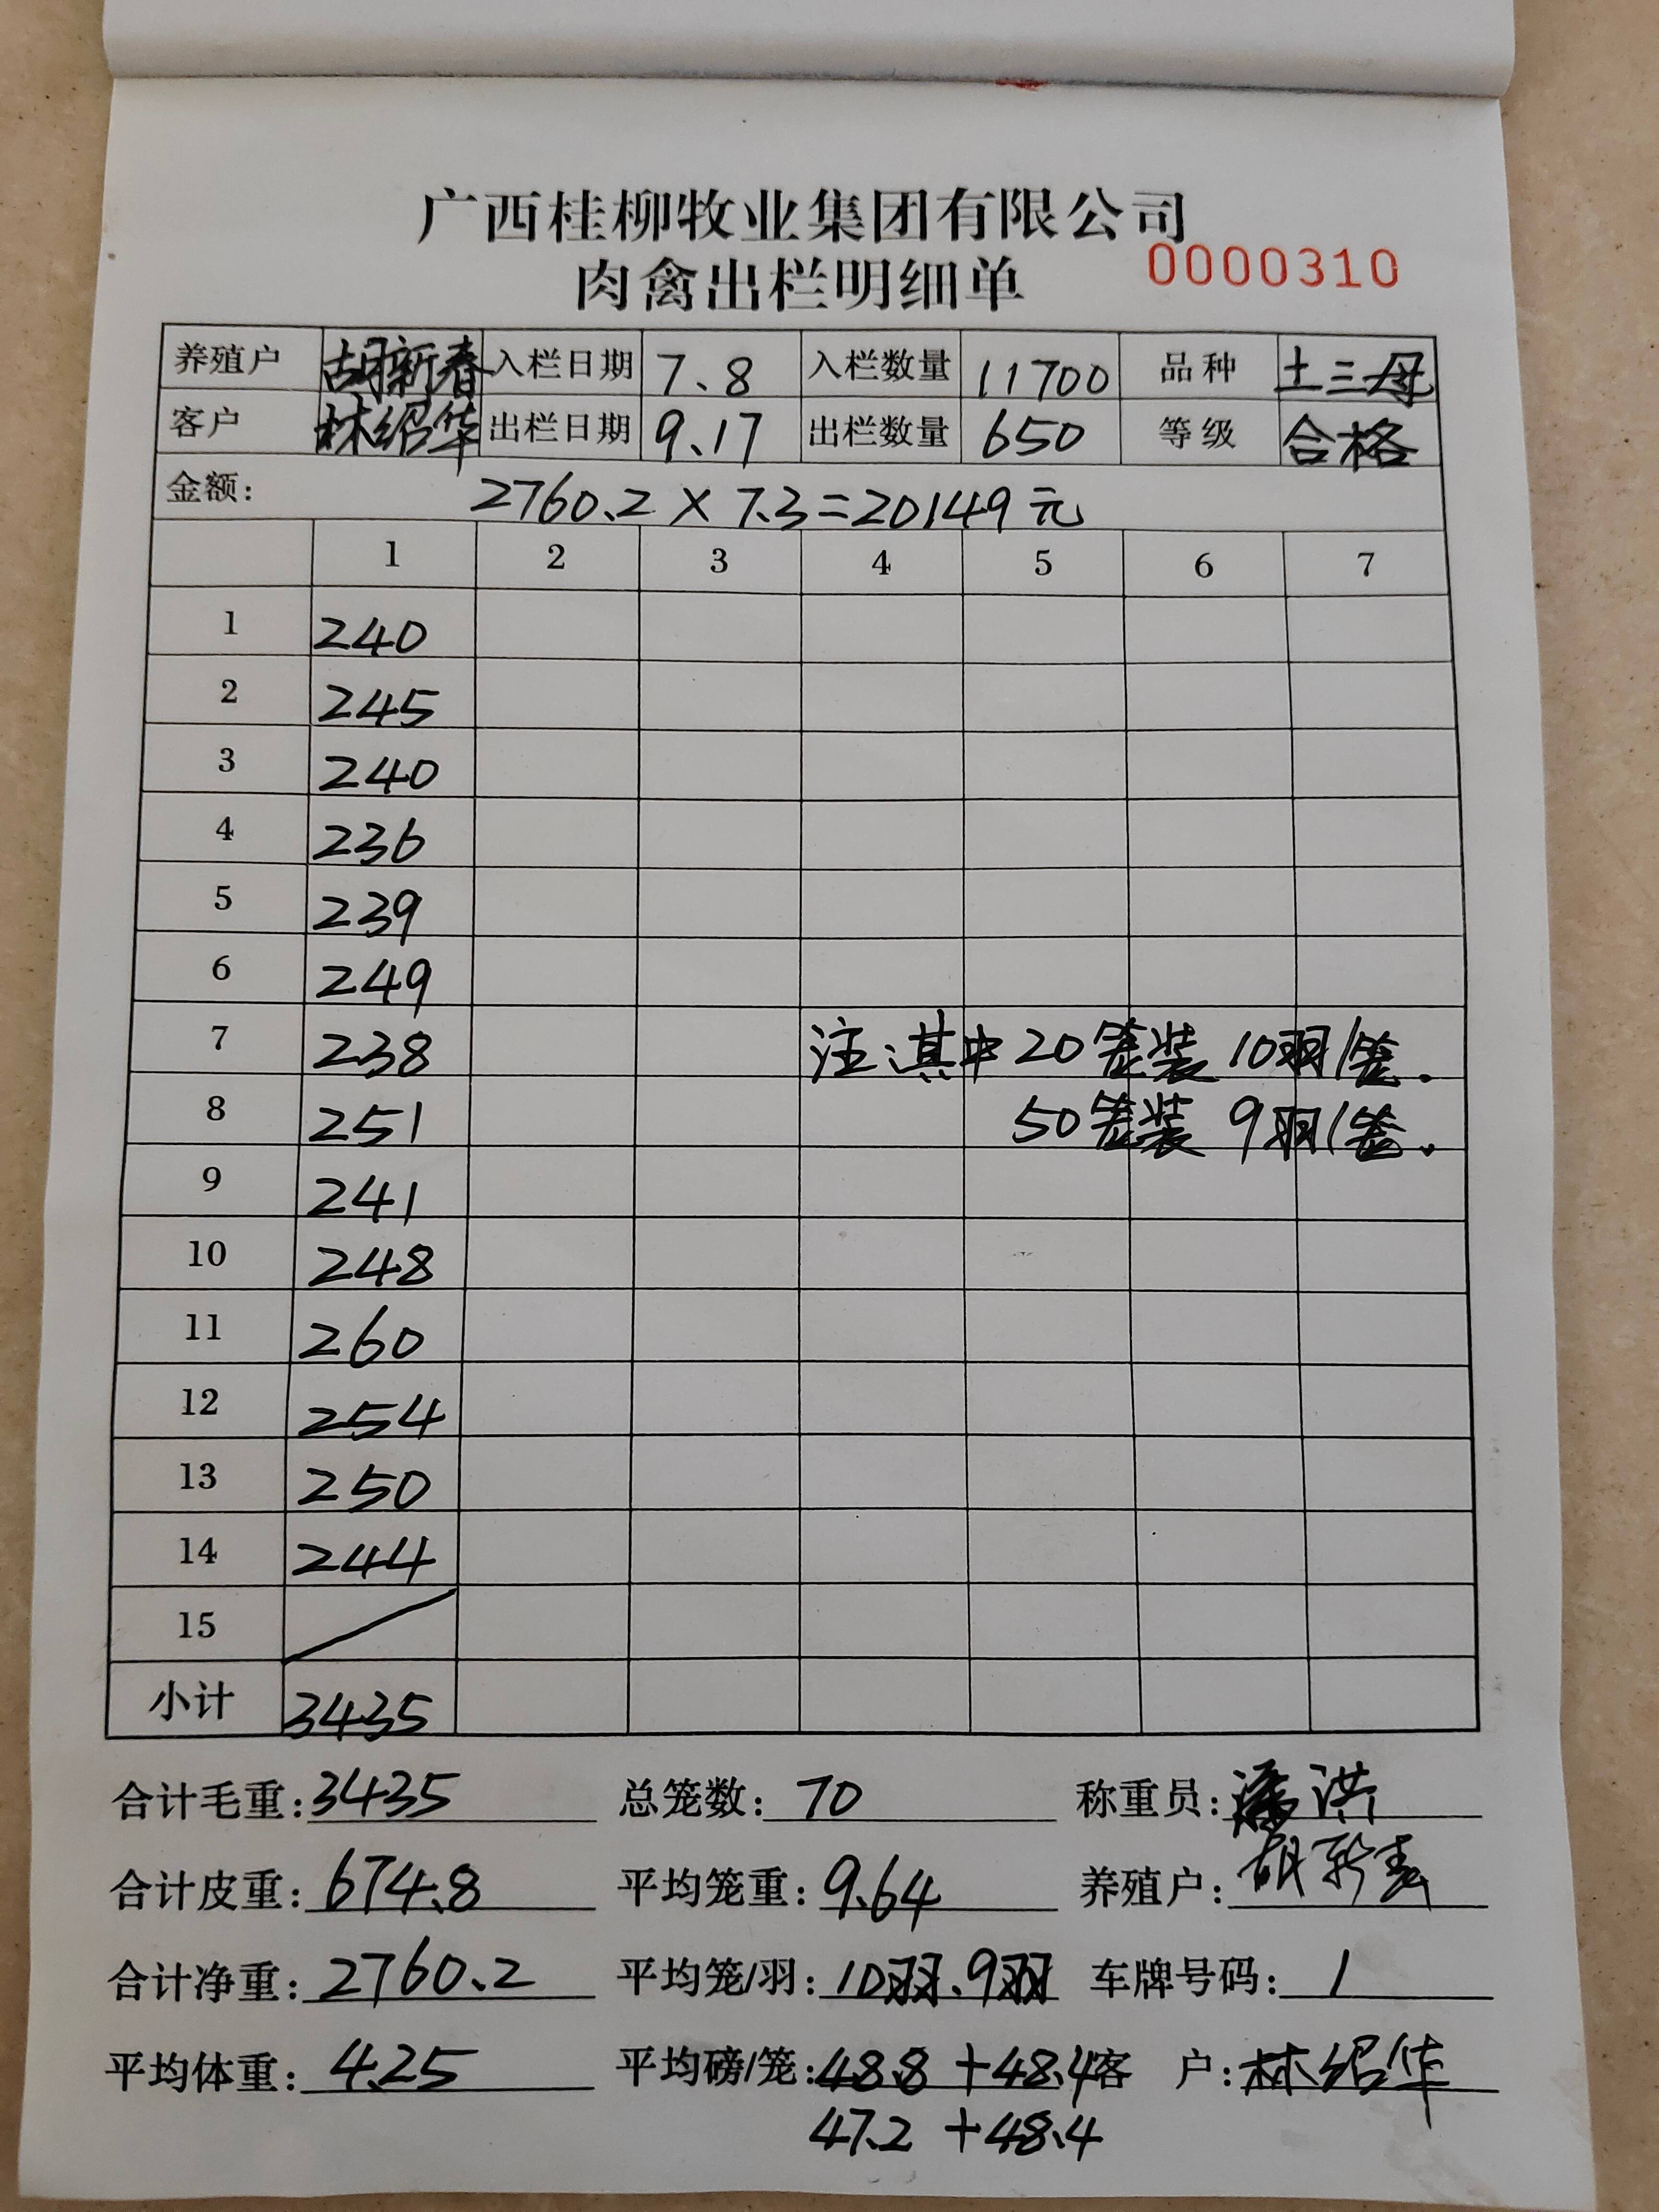 广西桂柳牧业集团有限公司
肉禽出栏明细单 0000310
养殖户 胡新春 入栏日期 7.8 入栏数量 11700 品种 土三母
客户 林绍华 出栏日期 9.17 出栏数量 650 等级 合格
金额: 2760.2 × 7.3=20149元
1 2 3 4 5 6 7
1 240
2 245
3 240
4 236
5 239
6 249
7 238 注:其中20笼装10羽/笼.
8 251 50笼装9羽/笼.
9 241
10 248
11 260
12 254
13 250
14 244
15
小计 3435
合计毛重:3435 总笼数:70 称重员:潘洪
合计皮重:674.8 平均笼重:9.64 养殖户:胡新春
合计净重:2760.2 平均笼/羽:10羽、9羽 车牌号码:1
平均体重:4.25 平均磅/笼:48.8+48.4 客户:林绍华
47.2+48.4